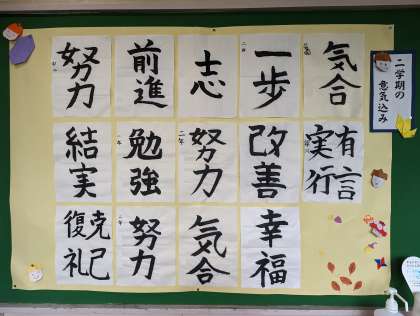 二学期の
意気込み
気合
一歩
志
前進
努力
有言
実行
改善
努力
勉強
結実
幸福
気合
努力
克己
復礼